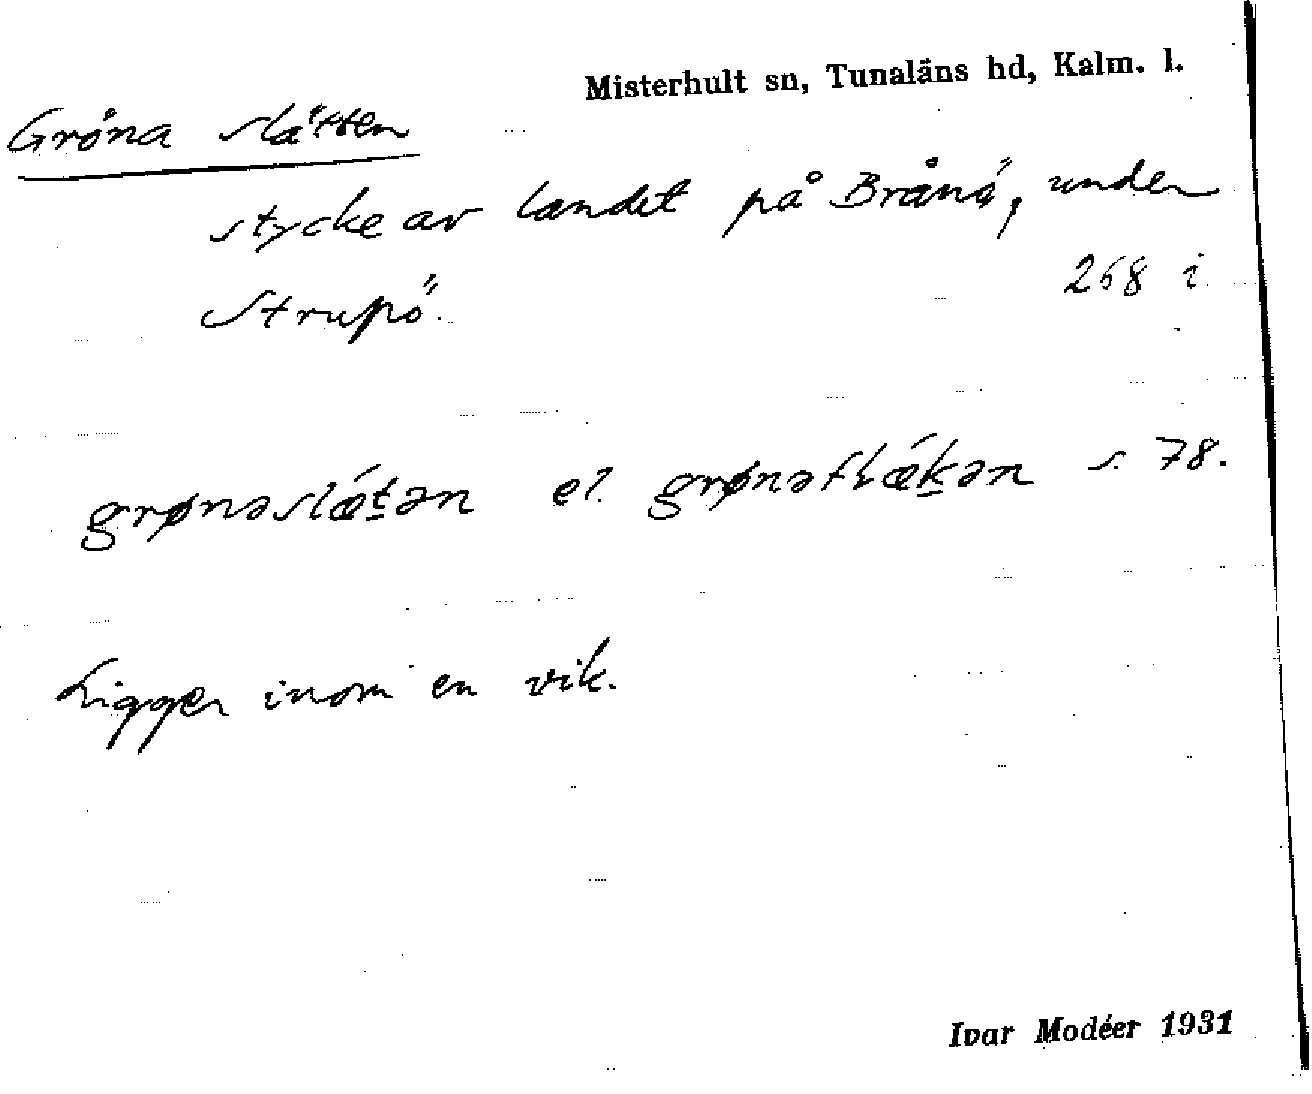 Misterhult sn, Tunaläns hd, Kalm. l.
Gröna slätten
stycke av landet på Brånö, under
Strupö. 268 i
grønəslǽt̲ən el. grønəflǽk̲ən s. 78.
Ligger inom en vik.
Ivar Modéer 1931